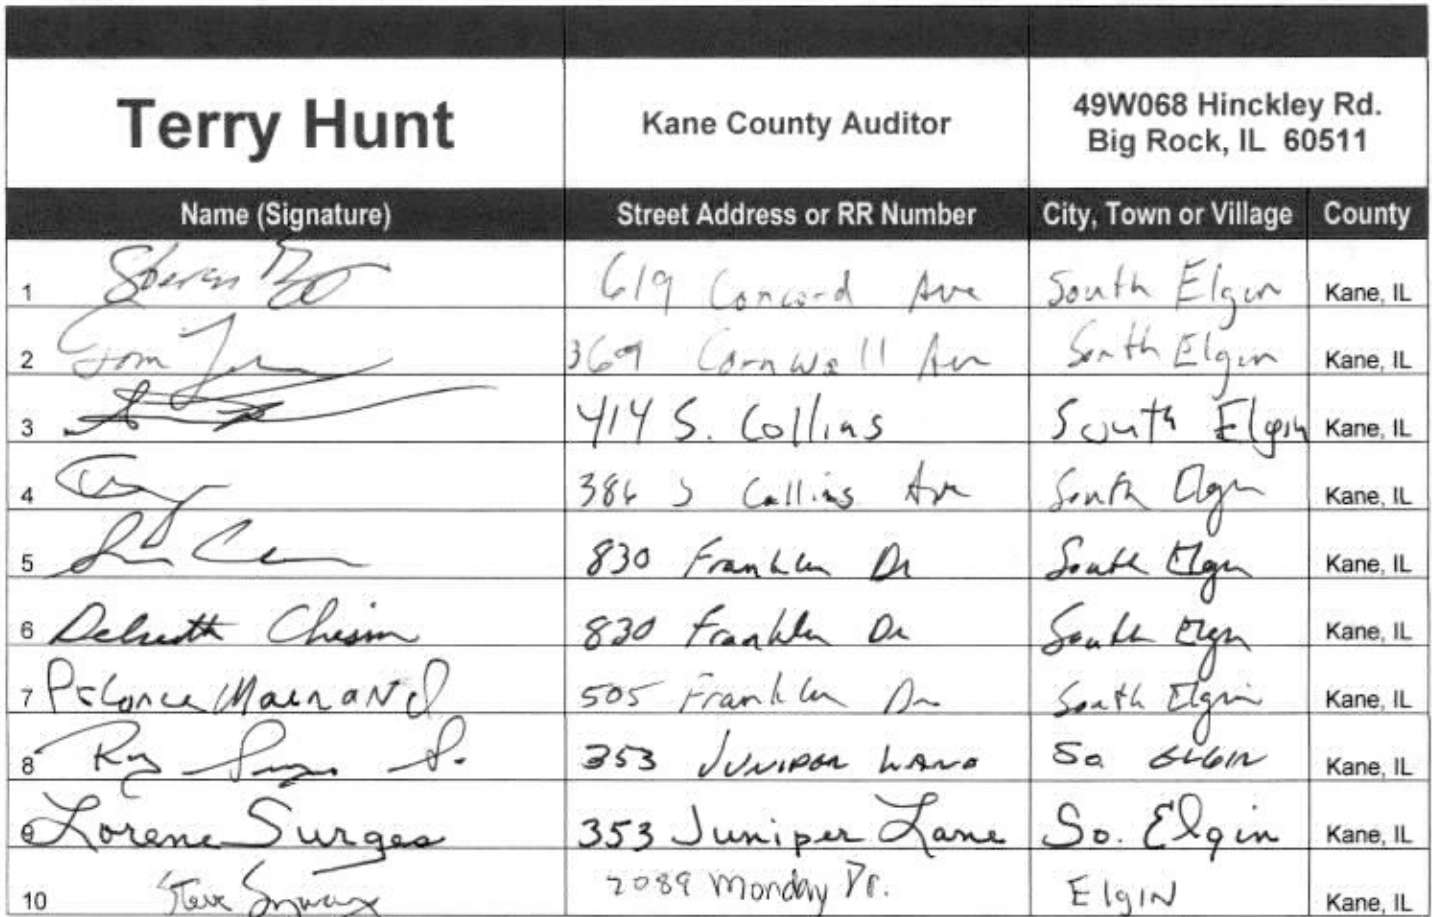 Terry Hunt Kane County Auditor 49W068 Hinckley Rd.
Big Rock, IL 60511
Name (Signature) Street Address or RR Number City, Town or Village County
1 619 Concord Ave South Elgin Kane, IL
2 Tom 369 Cornwall Av South Elgin Kane, IL
3 414 S. Collins South Elgin Kane, IL
4 386 S Collins Ave South Elgin Kane, IL
5 830 Franklin Dr South Elgin Kane, IL
6 Chism 830 Franklin Dr South Elgin Kane, IL
7 505 Franklin Dr South Elgin Kane, IL
8 Ray 353 JUNIPER LANE So ELGIN Kane, IL
9 Lorene Surges 353 Juniper Lane So. Elgin Kane, IL
10 Steve 2089 Monday Dr. ElgIN Kane, IL